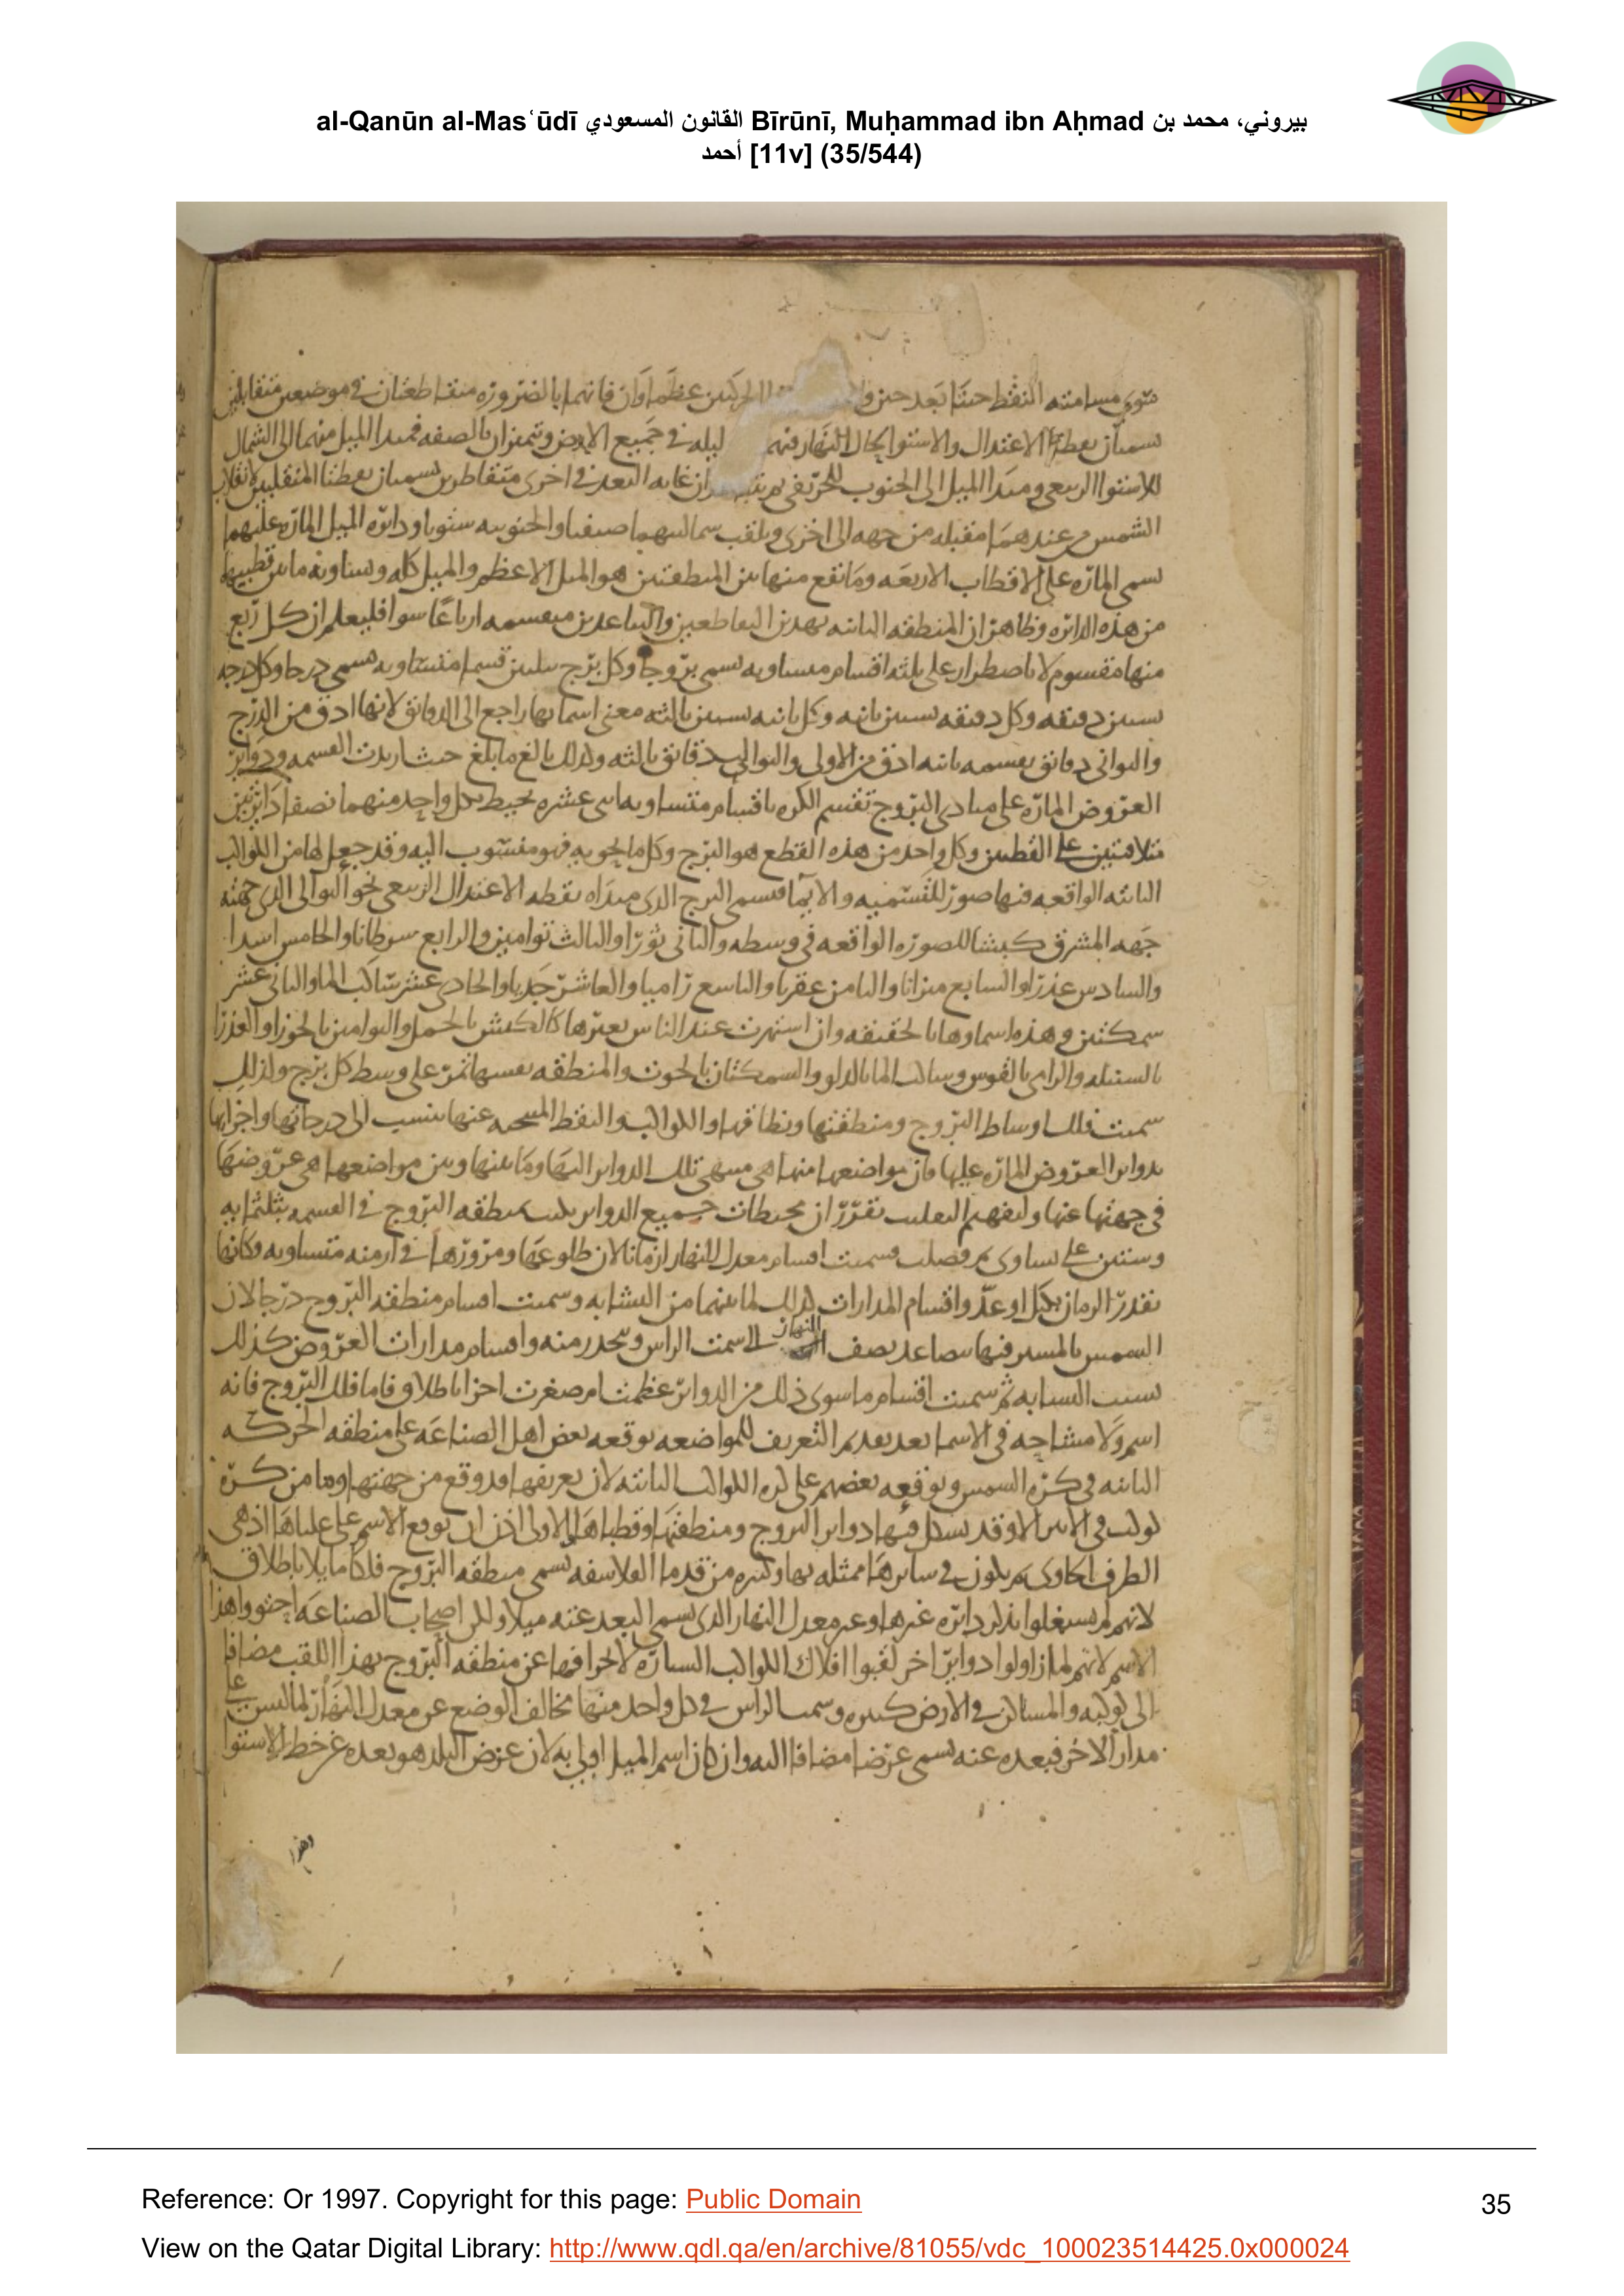 al-Qanūn al-Masʿūdī القانون المسعودي Bīrūnī, Muḥammad ibn Aḥmad بيروني، محمد بن
أحمد [11v] (35/544)
سوى مسامته النقط حينا بعد حين الحركتين عظماوان فانهما بالضروره متقاطعتان في موضعين متقابلين
الاعتدال والاستوا النهار فيهما ليله في جميع الارض ويتميزان بالصفه فمبدا الميل منهما الى الشمال
للاستوا الربيعي ومبدا الميل الى الجنوب للخريفي غايه البعد في اخرى متقاطرين يسميان نقطتا المنقلبين لانقلاب
الشمس عندهما مقبله من جهه الى اخرى ويلقب شماليهما صيفيا والجنوبيه شتويا ودائره الميل الماره عليهما
تسمى الماره على الاقطاب الاربعه وما يقع منها بين المنطقتين هو الميل الاعظم والميل كله ويساويه ما بين قطبيهما
من هذه الدائره وظاهر ان المنطقه الثانيه بهذين التقاطعين والتباعدين منقسمه ارباعا سوا فليعلم ان كل ربع
منها مقسوم لا باضطرار على ثلثه اقسام متساويه تسمى بروجا وكل برج بثلثين قسما متساويه تسمى درجا وكل درجه
بستين دقيقه وكل دقيقه بستين ثانيه وكل ثانيه بستين ثالثه معنى اسمائها راجع الى الدقائق لانها ادق من الدرج
والثواني دقائق بقسمه ثانيه ادق من الاولى والثوالث دقائق ثالثه وكذلك بالغ ما بلغ حيث اريدت القسمه ودوائر
العروض الماره على مبادي البروج تقسم الكره باقسام متساويه اثنى عشره يحيط بكل واحد منهما نصفا دائرتين
متلاقيتين على القطبين وكل واحد من هذه القطع هو البرج وكل ما يحويه فهو منسوب اليه وقد جعل لها من الكواكب
الثابته الواقعه فيها صور للتسميه والايما فسمى البرج الذى مبداه نقطه الاعتدال الربيعي نحو التوالى الذى جهته
جهه المشرق كبشا للصوره الواقعه في وسطه والثاني ثورا والثالث توامين والرابع سرطانا والخامس اسدا
والسادس عذرا والسابع ميزانا والثامن عقربا والتاسع راميا والعاشر جديا والحادى عشر ساكب الما والثانى عشر
سمكتين وهذه اسماوها بالحقيقه وان اشتهرت عند الناس بغيرها كالكبش بالحمل والتوامين بالجوزا والعذرا
بالسنبله والرامى بالقوس وساكب الما بالدلو والسمكتان بالحوت والمنطقه نفسها تمر على وسط كل برج ولذلك
سميت فلك اوساط البروج ومنطقتها ونطاقها والكواكب والنقط المتنحيه عنها تنسب الى درجاتها واجزائها
بدوائر العروض الماره عليها فان مواضعها منها هى منتهى تلك الدوائر اليها وما بينها وبين مواضعها هى عروضها
في جهتها عنها تقرر ان محيطات جميع الدوائر منطقه البروج في القسمه بثلثمايه
وستين على تساوى فصلت فسميت اقسام معدل النهار ازمانا لان طلوعها ومرورها في ازمنه متساويه وكانها
تقدر الزمان بكيل او عد واقسام المدارات كذلك لما بينهما من التشابه وسميت اقسام منطقه البروج درجا لان
الشمس بالمسير فيها تتصاعد نصف النهار الى سمت الراس وتنحدر منه واقسام مدارات العروض كذلك
بسبب التشابه ثم سميت اقسام ما سوى ذلك من الدوائر عظمت ام صغرت اجزا باطلاق فاما فلك البروج فانه
اسم ولا مشاحه في الاسما بعد تقديم التعريف للمواضعه يوقعه بعض اهل الصناعه على منطقه الحركه
الثانيه في كره الشمس ويوقعه بعضهم على كره الكواكب الثابته لان تعريفها قد وقع من جهتها وما من كره
كوكب في الاثير الا وقد تشكل فيها دوائر البروج ومنطقتها وقطباها الا ان يوقع الاسم على علياها اذ هى
الطرف الحاوى ثم يكون في سائرها ممثله بها وكثير من قدما الفلاسفه تسمى منطقه البروج فلكا مائلا باطلاق
لانهم لم يشتغلوا بذكر دائره غيرها وغير معدل النهار الذى يسمى البعد عنه ميلا ولكن اصحاب الصناعه اجتووا هذا
الاسم لانهم لما زاولوا دوائر اخر لقبوا افلاك الكواكب السياره لانحرافها عن منطقه البروج بهذا اللقب مضافا
الى كوكبه والمساكن في الارض كثيره وسمت الراس في كل واحد منها مخالف الوضع عن معدل النهار لما ليس على
مدار الاخر فبعده عنه يسمى عرضا مضافا اليه وان كان اسم الميل اولى به لان عرض البلد هو بعده عن خط الاستوا
وهذا
Reference: Or 1997. Copyright for this page: Public Domain
35
View on the Qatar Digital Library: http://www.qdl.qa/en/archive/81055/vdc_100023514425.0x000024